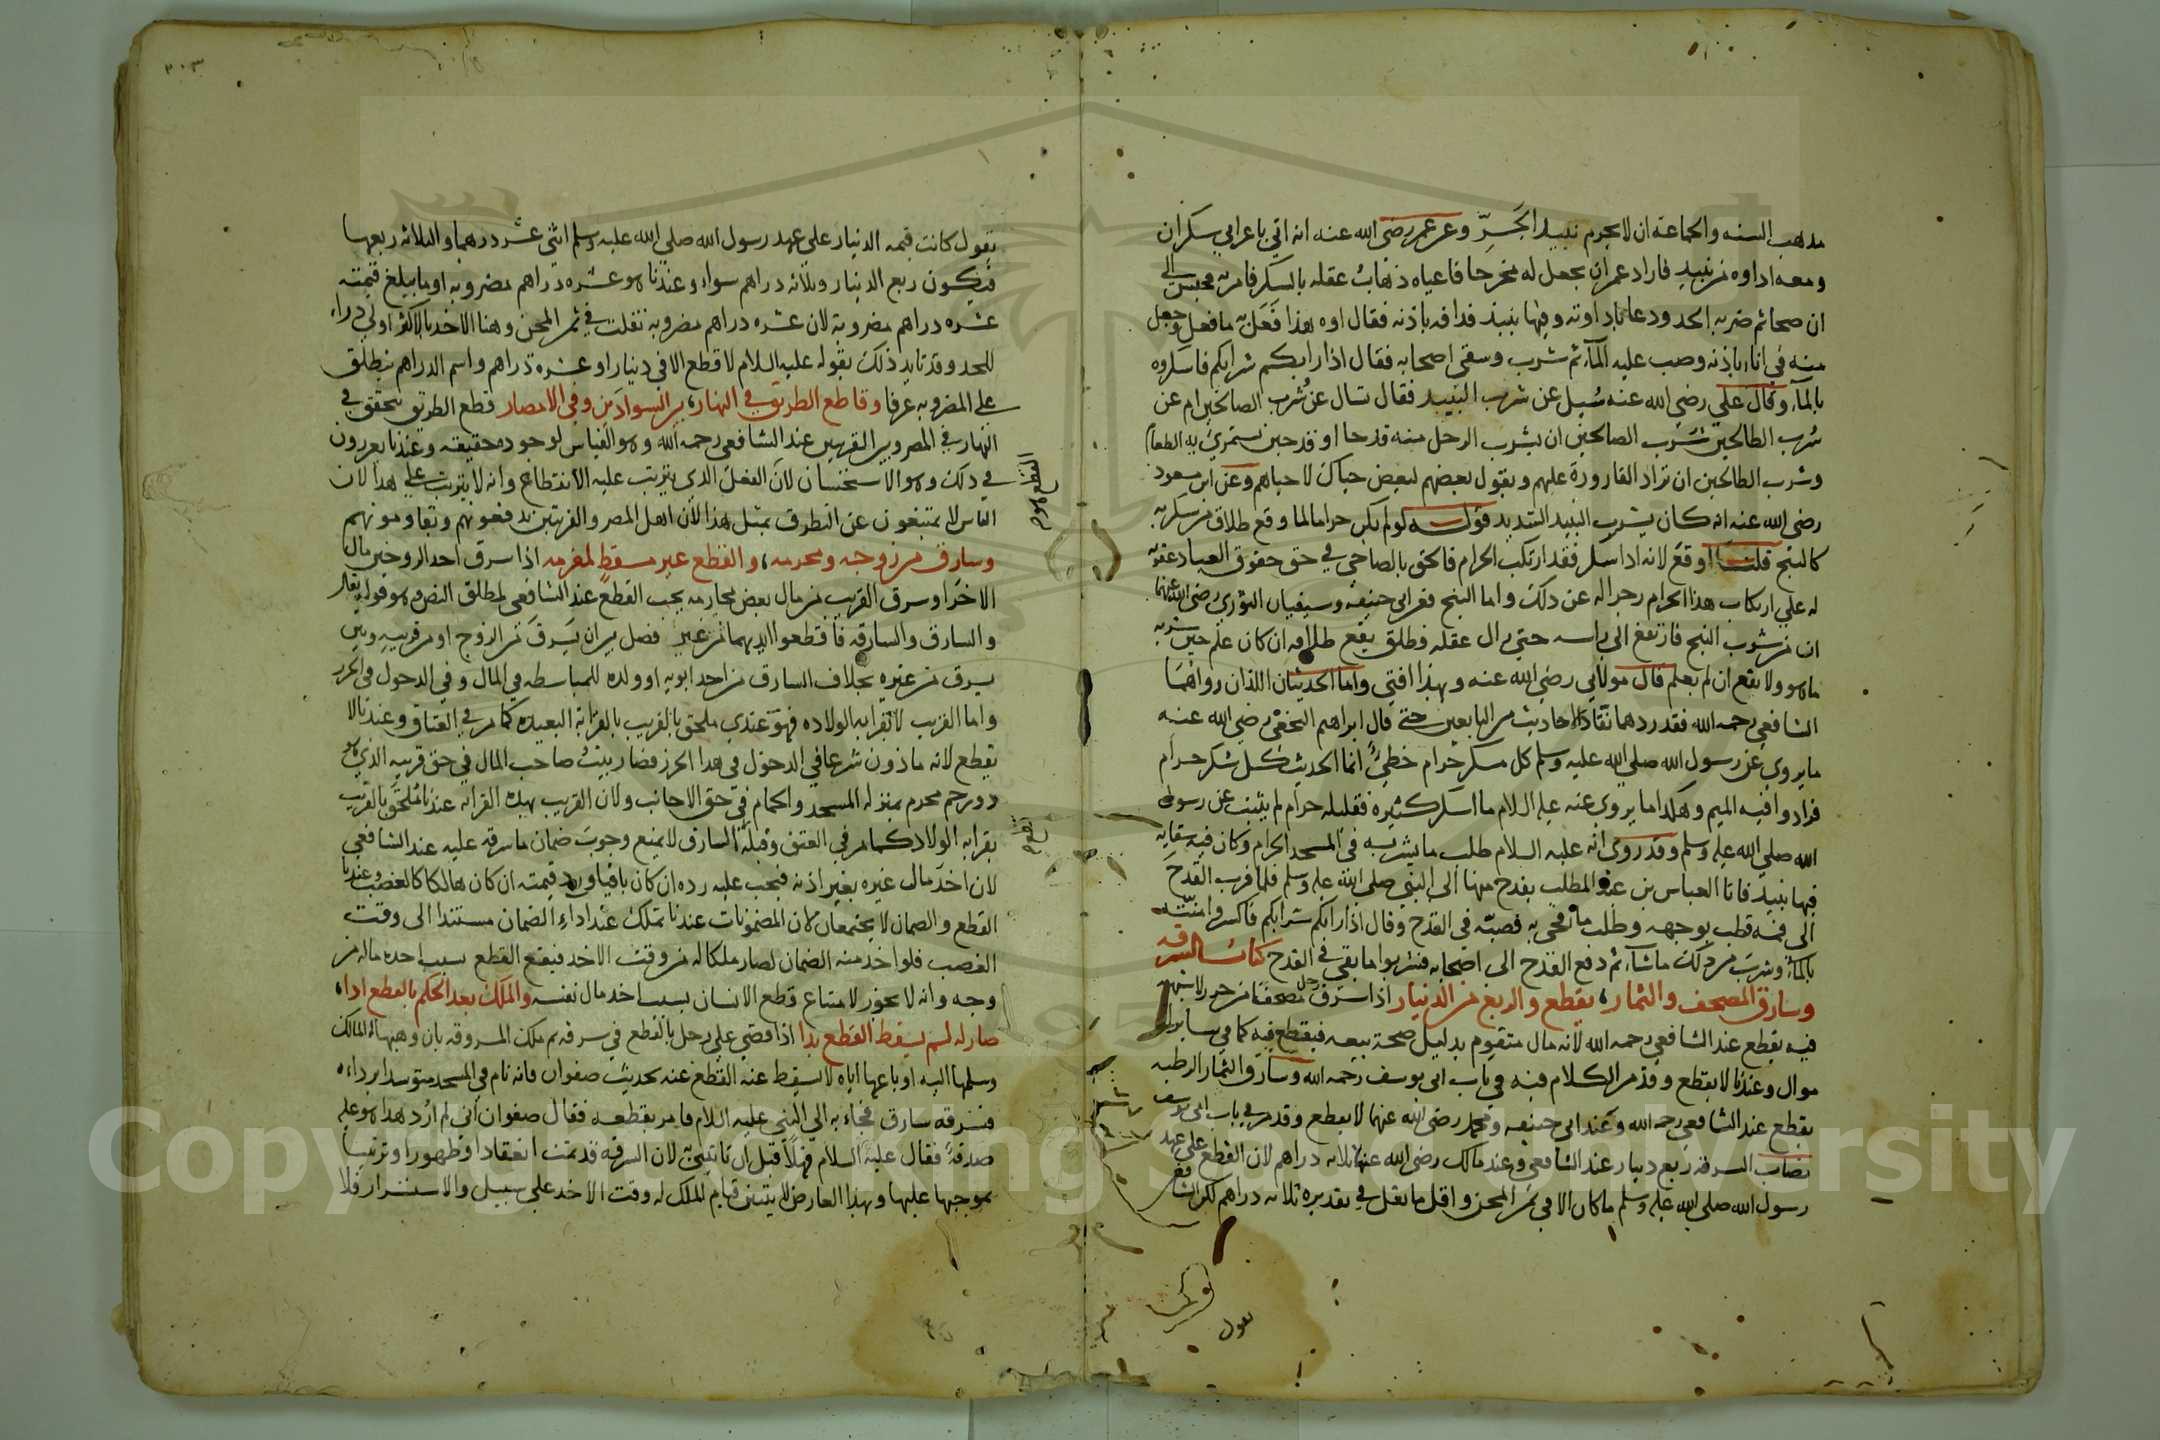 مذهب السنه والجماعة ان لا يحرم نبيذ الجَرِّ وعن عمر رضي الله عنه انه اتي باعرابي سكران
ومعه اداوه من نبيذ فاراد عمر ان يجعل له مخرجا فاعياه ذهابُ عقله بالسكر فامر به فحبس الي
ان صحا ثم ضربه الحد ودعا باداوته وفيها نبيذ فذاقه فقال اوه هذا فَعَل به ما فعل وجعل
منه في اناء وصب عليه المآء ثم شرب وسقى اصحابه فقال اذا رابكم شرابكم فاكسروه
بالمآء وقال علي رضي الله عنه سُيل عن شرب النبيذ فقال تسال عن شُرب الصالحين ام عن
شرب الطالحين شرب الصالحين ان يشرب الرجل منه قدحا او قدحين يستمرئ به الطعام
وشرب الطالحين ان تراد القارورة عليهم ويقول بعضهم لبعض حياك لا حياهم وعن ابن مسعود
رضي الله عنه انه كان يشرب النبيذ الشديد قوله لو لم يكن حراما لما وقع طلاق من سكر به
كالبنج قلنا اوقع لانه اذا سكر فقد ارتكب الحرام فالحق بالصاحي في حق حقوق العباد عقوبة
له علي ارتكاب هذا الحرام زجرا له عن ذلك واما البنج فعن ابي حنيفه وسيفيان الثوري رضي الله عنهما
ان من شرب البنج فارتفع الى راسه حتي زال عقله وطلق يقع طلاقه ان كان علم حين شربه
ما هو ولا يقع ان لم يعلم قال مولاي رضي الله عنه وبهذا افتي واما الحديثان اللذان رواهُمَا
الشافعي رحمه الله فقد ردهما نقاد الاحاديث من التابعين حتى قال ابراهيم النخعي رضي الله عنه
ما يروي عن رسول الله صلي الله عليه وسلم كل مسكر حرام خطئٌ انما الحديث كل سُكر حرام
فزادوا فيه الميم وهكذا ما يروى عنه عليه السلام ما اسكر كثيره فقليله حرام لم يثبت عن رسول
الله صلي الله عليه وسلم وقد روى انه عليه السلام طلب ما يشربه في المسجد الحرام وكان فيه سقايه
فيها نبيذ فاتا العباس بن عبد المطلب بقدح منها الى النبي صلى الله عليه وسلم فلما قرب القدح
الى فمه قطب بوجهه وطلب ماء فجي به فصبّه في القدح وقال اذا رابكم شرابكم فاكسروا متنه
بالمآء وشرب من ذلك ما شآء ثم دفع القدح الى اصحابه فشربوا ما بقي في القدح كتاب السرقه
وسارق المصحف والثمار يقطع والربع من الدنيار اذا سرق رجل مصحفا من حرز لا شبهة
فيه يقطع عند الشافعي رحمه الله لانه مال متقوم بدليل صحة بيعه فيقطع فيه كما في ساير الا
موال وعندنا لا يقطع وقد مر الكلام فيه في باب ابي يوسف رحمه الله وسارق الثمار الرطبه
يقطع عند الشافعي رحمه الله وعند ابي حنيفه ومحمد رضي الله عنهما لا يقطع وقد مر في باب ابي يوسف
نصاب السرقه ربع دينار عند الشافعي وعند مالك رضي الله عنهما ثلاثه دراهم لان القطع علي عهد
رسول الله صلي الله عليه وسلم ما كان الا في ثمن المجن واقل ما نقل في تقديره ثلاثه دراهم لكن الشافعي
يقول
٣٠٣
يقول كانت قيمه الدنيار علي عهد رسول الله صلي الله عليه وسلم اثنى عشر درهما والثلاثه ربعها
فيكون ربع الدنيار وثلاثه دراهم سواء وعندنا هو عشره دراهم مضروبه او ما يبلغ قيمته
عشره دراهم مضروبة لان عشره دراهم مضروبه نقلت في ثمن المجن وهنا الاخذ بالاكثر اولي دراء
للحد وقد تايد ذلك بقوله عليه السلام لا قطع الا في دنيار او عشره دراهم واسم الدراهم ينطلق
علي المضروبه عرفا وقاطع الطريق في النهار بين السوادَين وفي الامصار قطع الطريق يتحقق في
النهار في المصر وبين القريتين عند الشافعي رحمه الله وهو القياس لوجود حقيقته وعندنا يعزرون
في ذلك وهو الاستحسان لان الفعل الذي يترتب عليه الانقطاع وانه لا يترتب علي هذا لان
الناس لا يمتنعون عن التطرق بمثل هذا لان اهل المصر والقريتين يدفعونهم ويقاومونهم
وسارق من زوجه ومحرمه والقطع غير مسقط لمغرمه اذا سرق احد الزوجين مال
الاخَر او سرق القريب من مال بعض محارمه يجب القطع عند الشافعي لمطلق النص وهو قوله تعالى
والسارق والسارقه فاقطعوا ايديهما من غير فصل بين ان يَسرق من الزوج او من قريبه وبين
يسرق من غيره بخلاف السارق من احد ابويه او ولده للمباسطه في المال وفي الدخول في الحرز
واما القريب لا بقرابه الولاده فهو عندي ملحق بالقريب بالقرابة البعيده كما مر في العتاق وعندنا لا
يقطع لانه ماذون شرعا في الدخول في هذا الحرز فصار بيتُ صاحب المال في حق قريبه الذي هو
ذو رحم محرم بمنزله المسجد والحمام في حق الاجانب ولان القريب بهذه القرابه عندنا مُلحق بالقريب
بقرابه الولاد كما مر في العتق وقبله السارق لا يمنع وجوبَ ضمان ما سرقه عليه عند الشافعي
لان اخذ مال غيره بغير اذنه فيجب عليه رده ان كان باقيا ورد قيمته ان كان هالكا كالغصب وعندنا
القطع والضمان لا يجتمعان لان المضمونات عندنا تملك عند اداءِ الضمان مستندا الى وقت
الغصب فلو اخذ منه الضمان لصار ملكا له من وقت الاخذ فيقع القطع بسبب اخذه ماله من
وجه وانه لا يجوز لامتناع قطع الانسان بسبب اخذ مال نفسه والملك بعد الحكم بالقطع اذا
صار له لم يسقط القطع بذا اذا قضي علي رجل بالقطع في سرقه ثم ملك المسروقه بان وهبها له المالك
وسلمها اليه او باعها اياه لا يسقط عنه القطع عنه بحديث صفوان فانه نام في المسجد متوسدا برداءه
فسرقه سارق فجاء به الي النبي عليه السلام فامر بقطعه فقال صفوان اني لم ارُد هذا هو عليه
صدقةً فقال عليه السلام فهلا قبل ان تاتيني لان السرقه قد تمت انعقادا وظهورا وترتيبا
بموجبها عليها وبهذا العارض لم يتبين قيام الملك له وقت الاخذ علي سبيل والاستقرار فلا